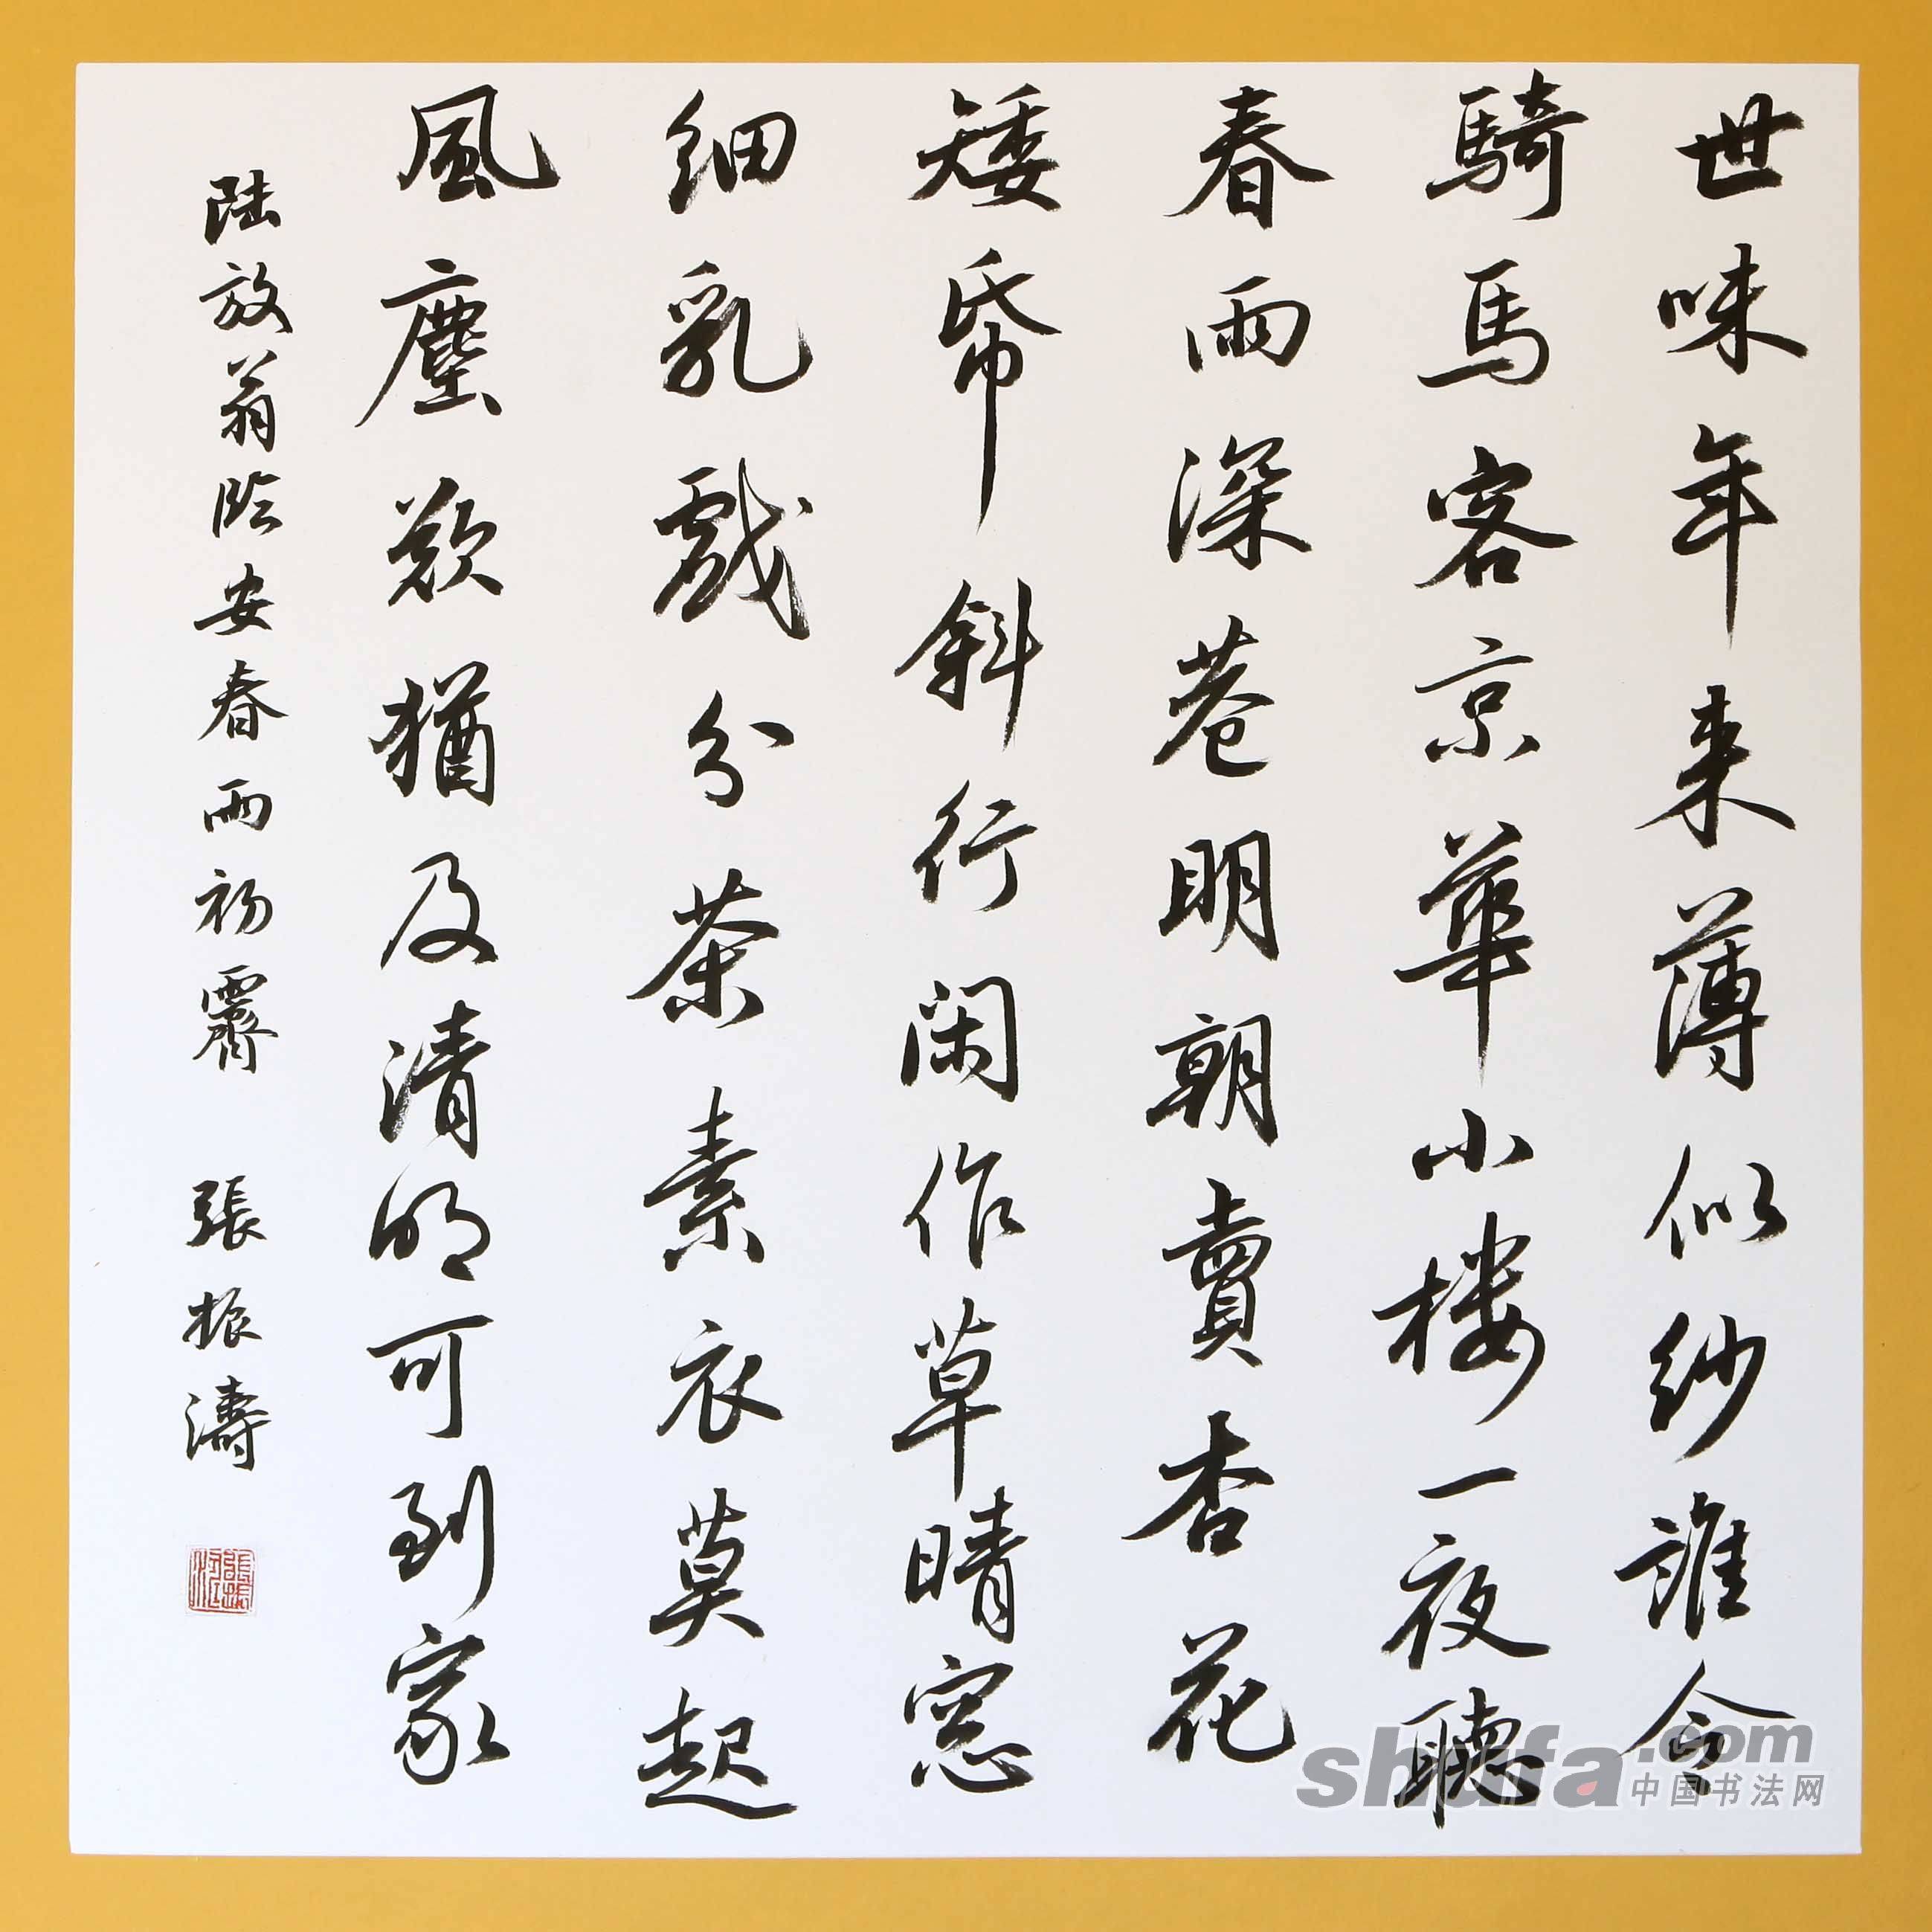 世味年来薄似紗誰令
騎馬客京華小楼一夜聽
春雨深巷明朝賣杏花
矮帋斜行闲作草晴窓
細乳戲分茶素衣莫起
風塵歎猶及清明可到家
陸放翁临安春雨初霽 張振濤
shufa.com
中国书法网